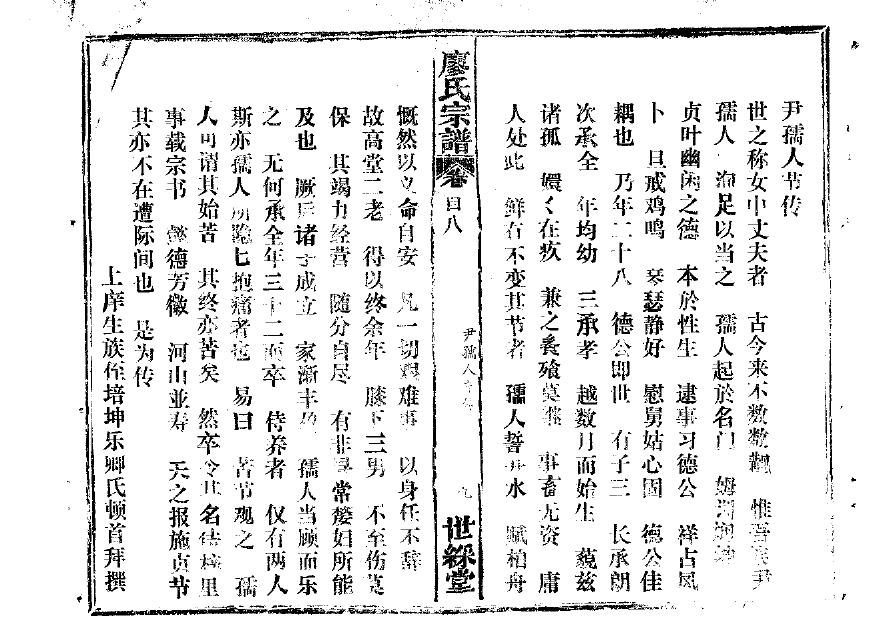 尹孺人节传
世之称女中丈夫者 古今来不数数觏 惟吾族尹
孺人 洵足以当之 孺人起於名门 娴
贞叶幽闲之德 本於性生 逮事习德公 祥占凤
卜 旦戒鸡鸣 琴瑟静好 慰舅姑心固 德公佳
耦也 乃年二十八 德公即世 有子三 长承朗
次承全 年均幼 三承孝 越数月而始生 藐兹
诸孤 嬛々在疚 兼之饔飧莫继 事畜无资 庸
人处此 鲜有不变其节者 孺人誓井水 赋柏舟
廖氏宗譜
卷 目八
尹孺人节传
九
世綵堂
慨然以立命自安 凡一切艰难事 以身任不辞
故高堂二老 得以终余年 膝下三男 不至伤
保 其竭力经营 随分自尽 有非寻常嫠妇所能
及也 厥后诸子成立 家渐丰盈 孺人当顾而乐
之 无何承全年三十二而卒 侍养者 仅有两人
斯亦孺人所隐七抱痛者也 易曰 苦节 之 孺
人可谓其始苦 其终亦苦矣 然卒令其名 里
事载宗书 懿德芳徽 河山並寿 天之报施贞节
其亦不在遭际间也 是为传
上庠生族侄培坤乐卿氏顿首拜撰